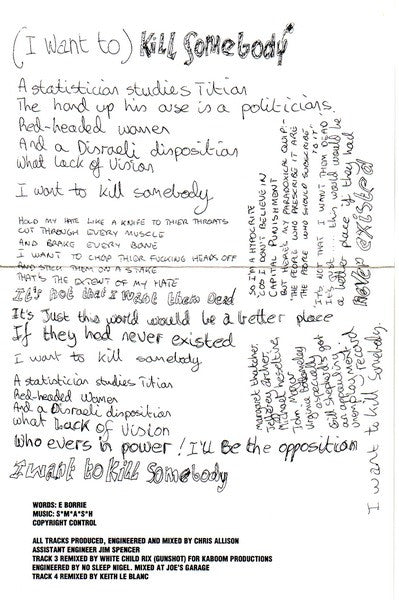 (I want to) Kill Somebody
A statistician studies Titian
The hand up his arse is a politicians
Red-headed women
And a Disraeli disposition
What Lack of Vision
I want to kill somebody
HOLD MY HATE LIKE A KNIFE TO THIER THROATS
CUT THROUGH EVERY MUSCLE
AND BRAKE EVERY BONE
I WANT TO CHOP THIER FUCKING HEADS OFF
AND STICK THEM ON A STAKE
THAT'S THE EXTENT OF MY HATE
It's not that I want them Dead
It's Just this world would be a better place
If they had never existed
I want to kill somebody
A statistician studies Titian
Red-headed Women
And a Disraeli disposition
what Lack of Vision
Who evers in power! I'll Be the opposition
I want to kill Somebody
SO I'M A HYPOCRITE
COS I DON'T BELIEVE IN
CAPITAL PUNISHMENT
BUT HERE'S MY PARADOXICAL QUIP:-
THE PEOPLE WHO PRESCRIBE IT ARE
THE PEOPLE WHO SHOULD SUBSCRIBE
TO IT'
It's NOT THAT I WANT THEM DEAD'
It's just ... this world would be
a better place if they had
Never existed
Margaret thatcher,
Jeffrey Archer,
Michael heseltine,
John Major
Virginia Bottomeley
especially
Gill Shepard's got
an appauling
unemployment
record
I want to kill Somebody.
WORDS: E BORRIE
MUSIC: S*M*A*S*H
COPYRIGHT CONTROL
ALL TRACKS PRODUCED, ENGINEERED AND MIXED BY CHRIS ALLISON
ASSISTANT ENGINEER JIM SPENCER
TRACK 3 REMIXED BY WHITE CHILD RIX (GUNSHOT) FOR KABOOM PRODUCTIONS
ENGINEERED BY NO SLEEP NIGEL. MIXED AT JOE'S GARAGE
TRACK 4 REMIXED BY KEITH LE BLANC